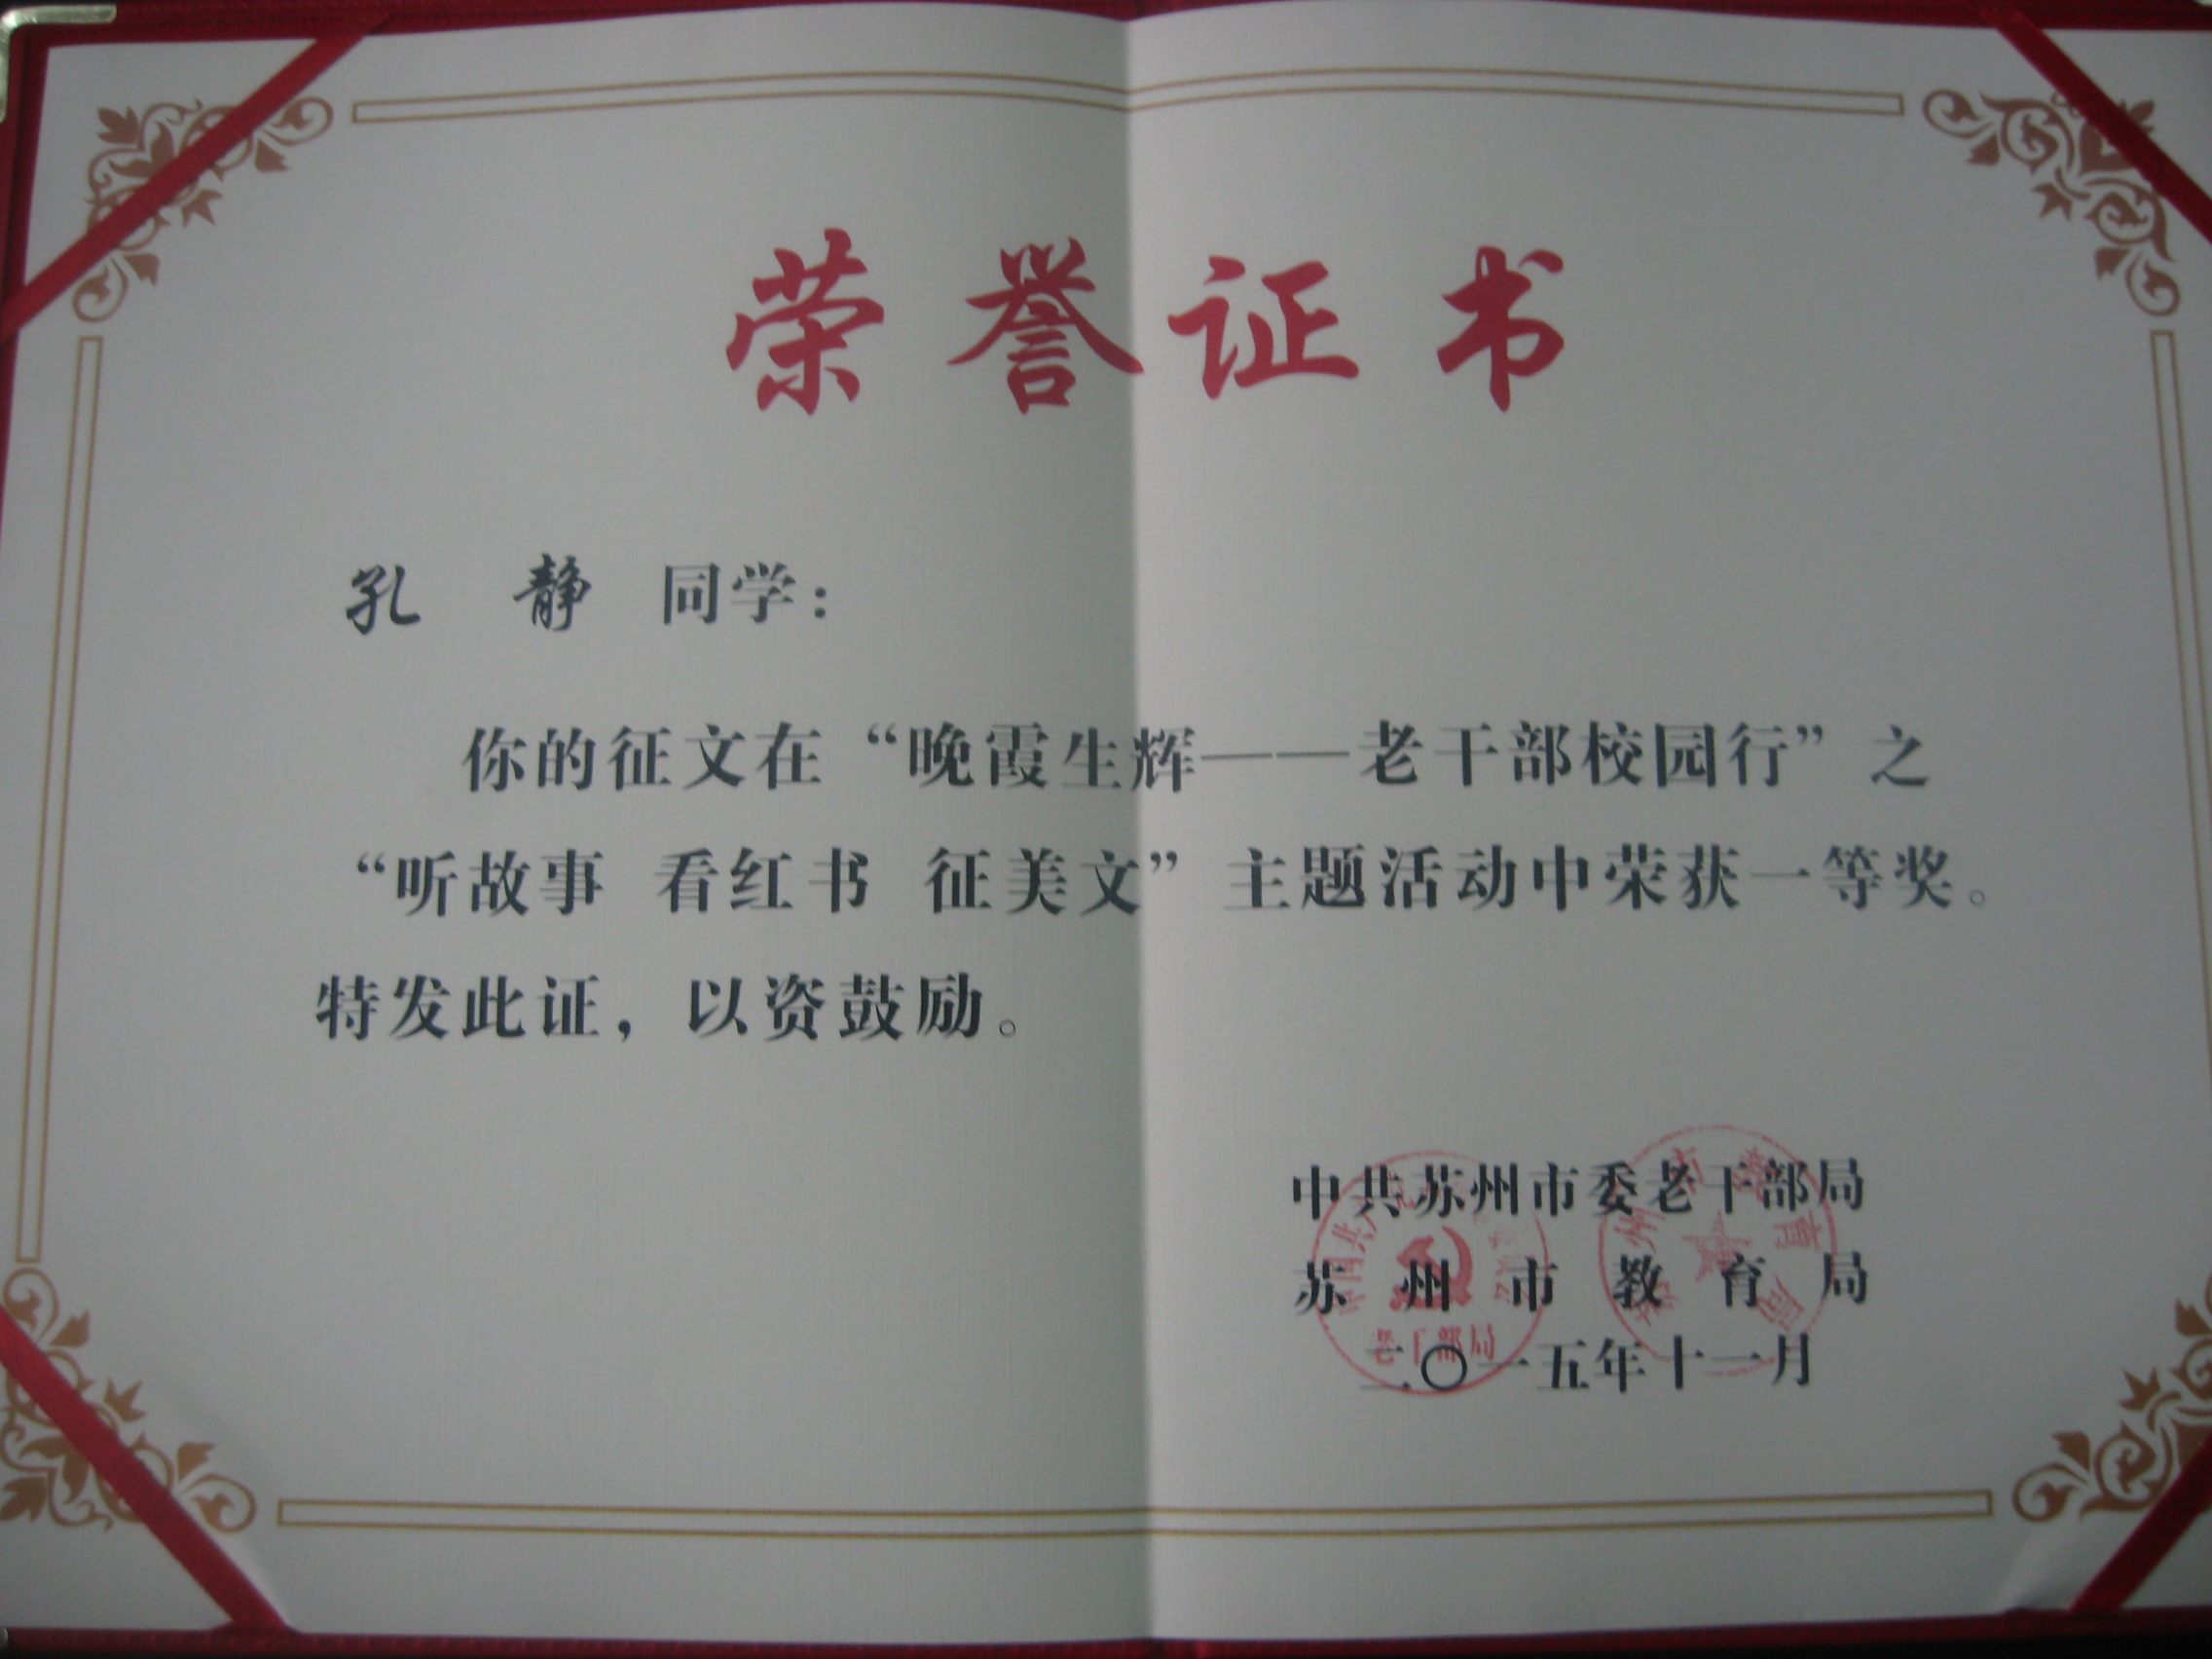 荣誉证书
孔 静 同学：
你的征文在“晚霞生辉——老干部校园行”之
“听故事 看红书 征美文”主题活动中荣获一等奖。
特发此证，以资鼓励。
中共苏州市委老干部局
苏州市教育局
二〇一五年十一月
老干部局